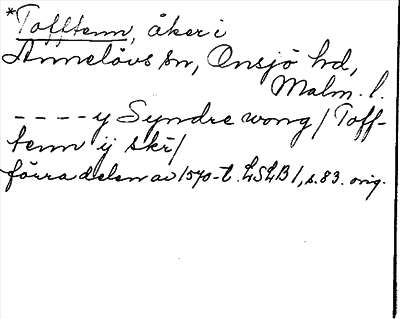 *Tofftenn, åker i
Annelövs sn, Onsjö hd,
Malm. l.
---- y Syndre wong / Toff-
tenn ij skr /
förra delen av 1570-t. LSLB 1, s. 83. orig.